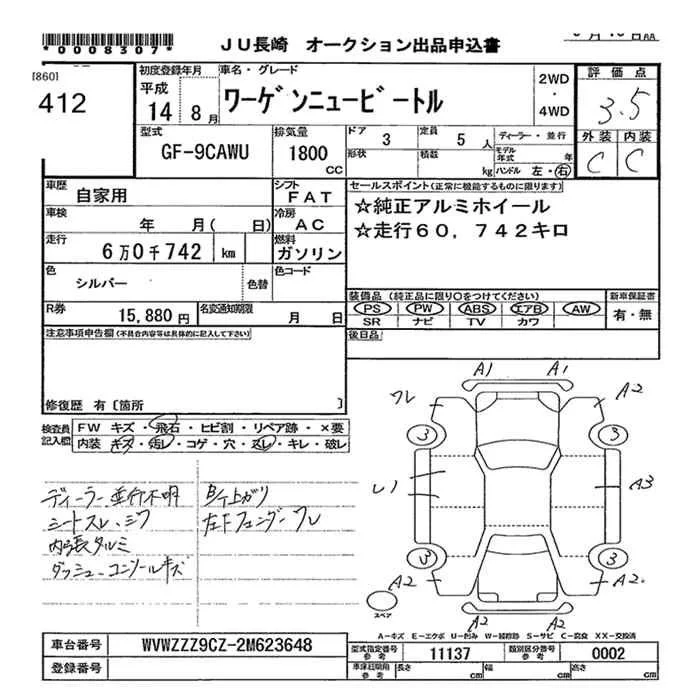 *0008307*
JU長崎 オークション出品申込書
[860]
412
初度登録年月
平成
14 8月
車名・グレード
ワーゲンニュービートル
2WD
・
4WD
評価点
3.5
外装 内装
C C
型式
GF-9CAWU
排気量
1800
CC
ドア 3
定員 5 人
ディーラー・並行
形状
積数 kg
モデル年式 年
ハンドル 左・右
車歴
自家用
シフト
FAT
車検
年 月( 日)
冷房
AC
走行
6万0千742 km
燃料
ガソリン
色
シルバー
色替
色コード
R券
15,880円
名変通知期限
月 日
セールスポイント(正常に機能するものに限ります)
☆純正アルミホイール
☆走行60,742キロ
装備品 (純正品に限り○をつけてください)
PS PW ABS エアB AW
SR ナビ TV カワ
新車保証書
有・無
後日品
注意事項申告欄(不具合内容等は具体的に記入して下さい)
修復歴 有〔箇所 〕
検査員記入欄
FW キズ・飛石・ヒビ割・リペア跡・×要
内装 キズ・汚レ・コゲ・穴・スレ・キレ・破レ
ディーラー、並行不明
シートスレ、シワ
内張タルミ
ダッシュ、コンソールキズ
左Fフェンダーワレ
A1 A1
ワレ
A2
3 3
A3
3 3
A2
A2
A2 A2
スペア
A-キズ E-エクボ U-凹み W-補修跡 S-サビ C-腐食 XX-交換済
車台番号
WVWZZZ9CZ-2M623648
登録番号
型式指定番号
参考
11137
類別区分番号
参考
0002
車庫証明用
参考
長さ cm
幅 cm
高さ cm